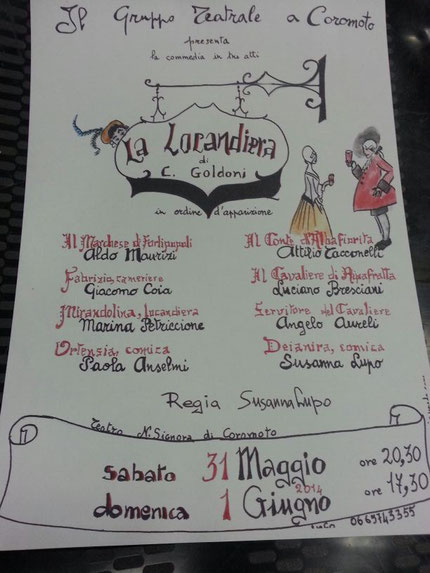 Il Gruppo Teatrale a Coromoto
presenta
la commedia in tre atti
La Locandiera
di
C. Goldoni
in ordine d'apparizione
Il Marchese di Forlipopoli
Aldo Maurizi
Il Conte d'Albafiorita
Attilio Tacconelli
Fabrizio, cameriere
Giacomo Coia
Il Cavaliere di Ripafratta
Luciano Bresciani
Mirandolina, locandiera
Marina Petriccione
Servitore del Cavaliere
Angelo Aureli
Ortensia, comica
Paola Anselmi
Deianira, comica
Susanna Lupo
Regia Susanna Lupo
Teatro N. Signora di Coromoto
sabato 31 Maggio ore 20,30
2014
domenica 1 Giugno ore 17,30
0665743355